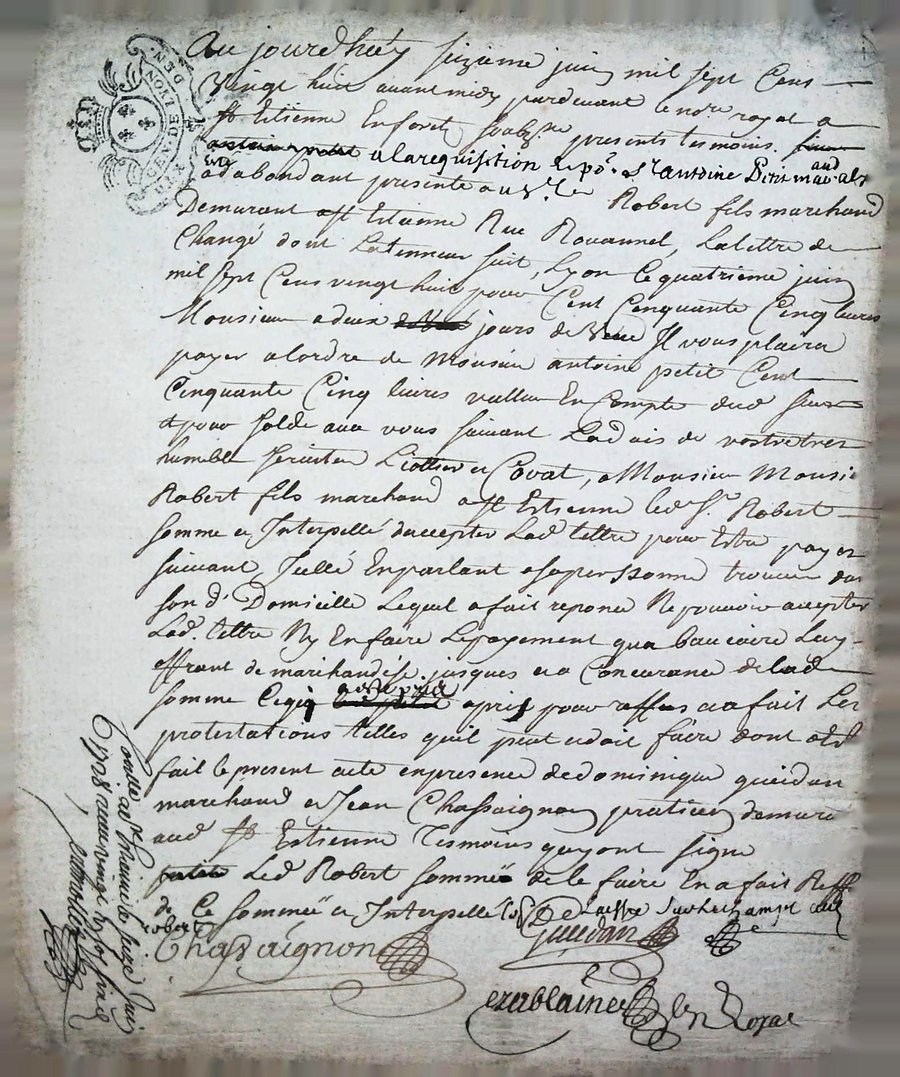 GEN. DE LYON
DEN.
Au jourdhuy seizieme juin mil sept Cens
Vingt huit avant midy pardevant le nore royal a
St Etienne En foret soubzne presents tesmoins
a la requisition de sr antoine Petit mar
presente a Robert fils marchand
Demurant a St Etienne Rue Rouannel, La lettre de
Changé dont La tenneur suit, Lyon Ce quatrieme juin
mil sept Cens vingt huit pour Cent Cinquante Cinq livres
Monsieur a deux jours de veue Il vous plaira
payer a lordre de Monsieur antoine petit Cent
Cinquante Cinq livres valleur En Compte dud sieur
et pour solde suivant Ladvis de vostre tres
humble serviteur et Covat, a Monsieur Monsi
Robert fils marchand a St Estienne led sr Robert
somme et Interpellé daccepter Lad lettre pour Estre payer
suivant Icelle En parlant a sa perssonne trouvee dans
son d. Domicille Lequel a fait reponce Ne pouvoir accepter
Lad. lettre Ny En faire Le payement qua baucaire Luy
offrant de marchandise jusques a Concurance de lad
somme Ce qui apris pour reffus et a fait Les
protestations telles quil peut et doit faire dont at
fait le present acte en presence de dominique gueidan
marchand et Jean Chassaignon praticien demurt
aud St Estienne Tesmoins qui ont signe
Led Robert sommé de le faire En a fait Reff
de Ce sommé et Interpellé
robert
Chassaignon Gueidan
Ezablaine Nre Royal
Controllé a St Etienne le seize Juin
1728